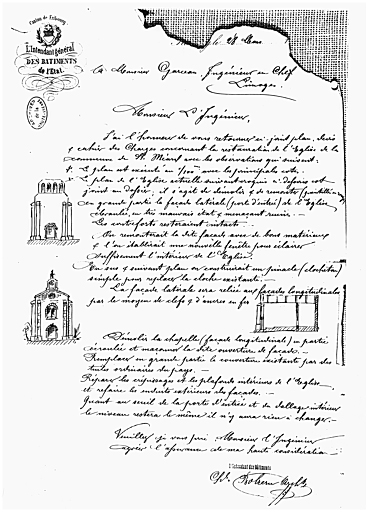 Canton de Fribourg
L'Intendant Général
DES BATIMENTS
de l'Etat.
le 28 Mars
à Monsieur Garceau Ingénieur en Chef
Limoges
Monsieur l'Ingénieur,
J'ai l'honneur de vous retourner ci-joint plan, devis
& cahier des charges concernant la restauration de l'Eglise de la
commune de St Méard avec les observations qui suivent:
Le plan est exécuté au 1/100 avec les principales cotes.
Le plan de l'Eglise actuelle suivant croquis ci-dessus est
joint au dossier, il s'agit de démolir & de remonter
en grande partie la façade latérale (porte d'entrée) de l'Eglise
écroulée, en très mauvais état & menaçant ruine. —
Les contreforts resteraient instants
On remonterait la dite façade avec de bons matériaux
& l'on établirait une nouvelle fenêtre pour éclairer
suffisamment l'intérieur de l'Eglise.
suivant plan on construirait un pinacle (clocheton)
simple pour replacer la cloche existante. —
La façade latérale sera reliée aux façades longitudinales
par le moyen de clefs & d'ancres en fer
Démolir la chapelle (façade longitudinale) en partie
écroulée et maçonner la dite ouverture de façade. —
Remplacer en grande partie la couverture existante par des
tuiles ordinaires du pays. —
Réparer les crépissages et les plafonds intérieurs de l'Eglise
et refaire les enduits extérieurs des façades. —
Quant au seuil de la porte d'entrée et du dallage intérieur
le niveau restera le même il n'y aura rien à changer. —
Veuillez je vous prie Monsieur l'Ingénieur
agréer l'assurance de ma haute considération
L'Intendant des Bâtiments